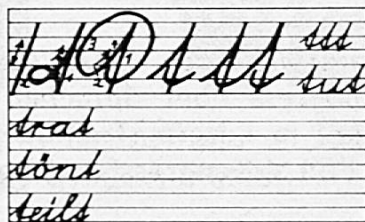 t t tt ttt
tut
trat
tönt
teilt